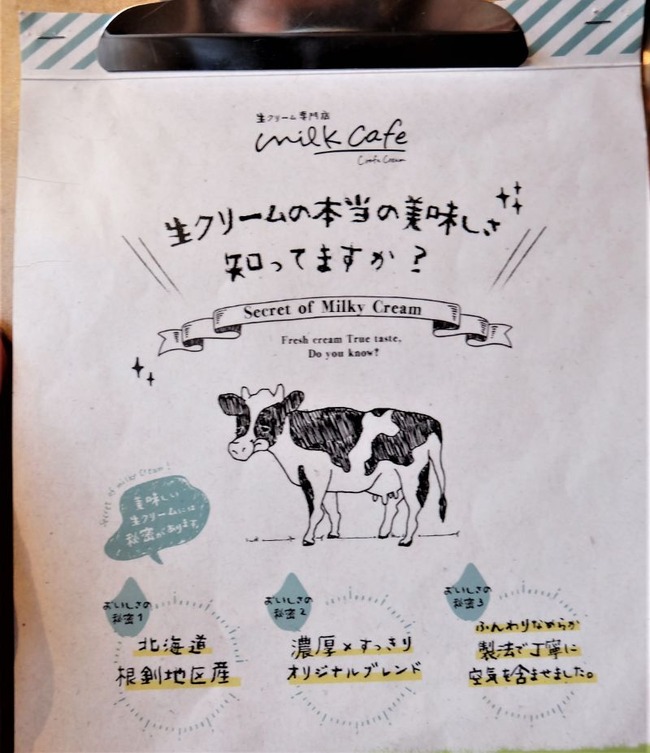 生クリーム専門店
milk cafe
生クリームの本当の美味しさ
知ってますか？
Secret of Milky Cream
Fresh cream True taste.
Do you know?
Secret of milky Cream!
美味しい
生クリームには
秘密があります。
おいしさの
秘密1
北海道
根釧地区産
おいしさの
秘密2
濃厚×すっきり
オリジナルブレンド
おいしさの
秘密3
ふんわりなめらか
製法で丁寧に
空気を含ませました。